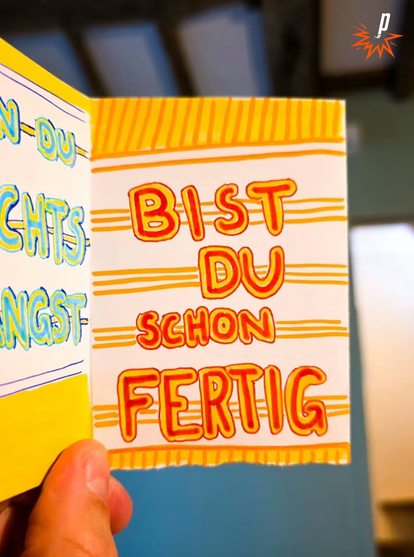 N DU
CHTS
ANGST
BIST
DU
SCHON
FERTIG
p